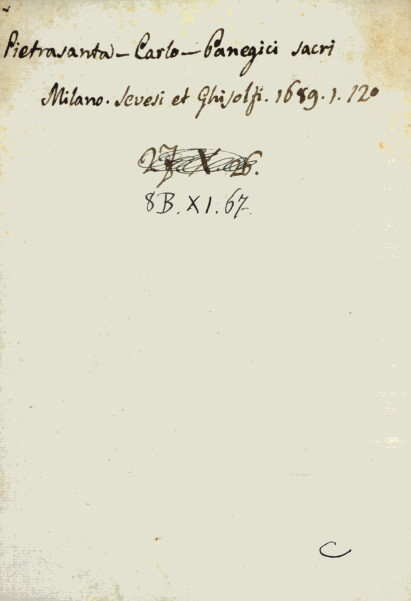 Pietrasanta - Carlo - Panegici sacri
Milano. Sevesi et Ghisolfi. 1689. 1. 12º
27 X 26.
8B. XI. 67.
C